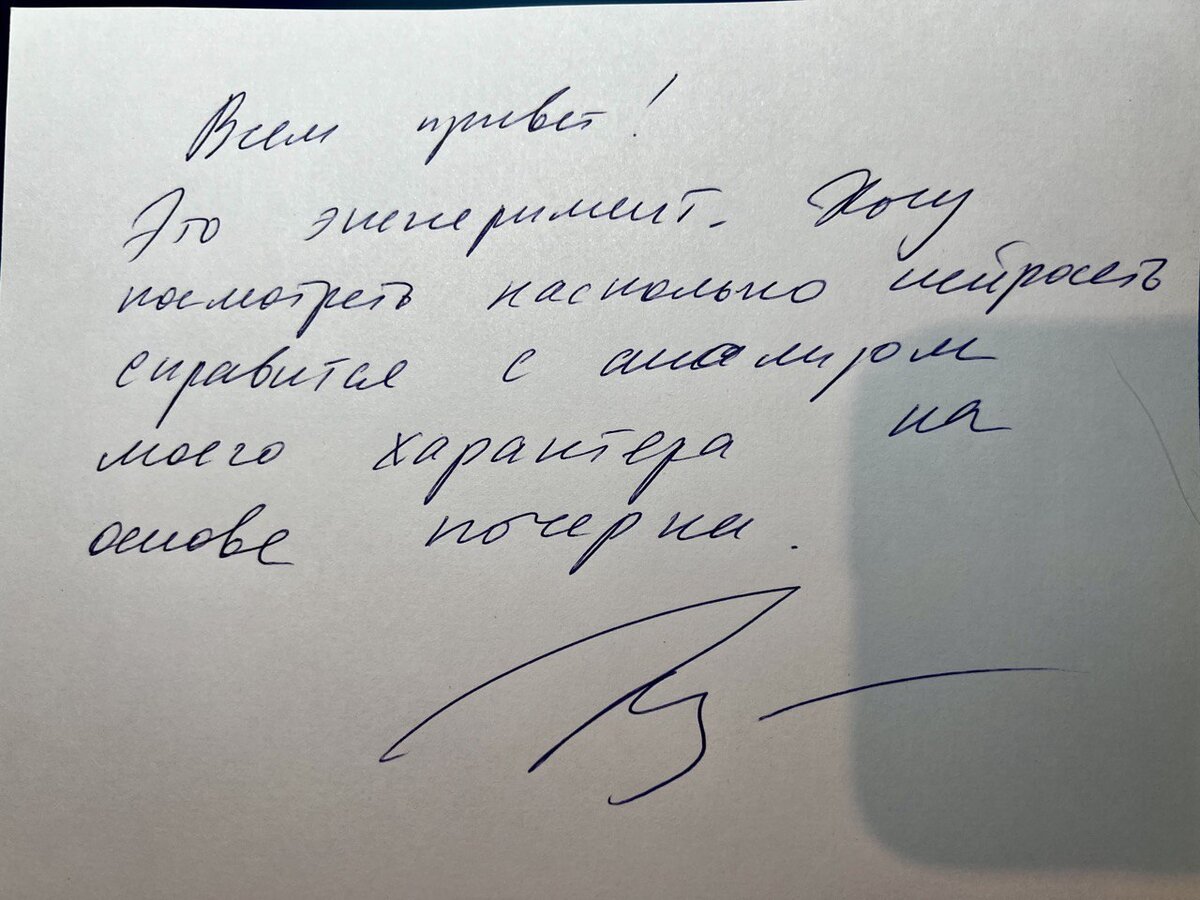 Всем привет!
Это эксперимент. Хочу
посмотреть насколько нейросеть
справится с анализом
моего характера на
основе почерка.